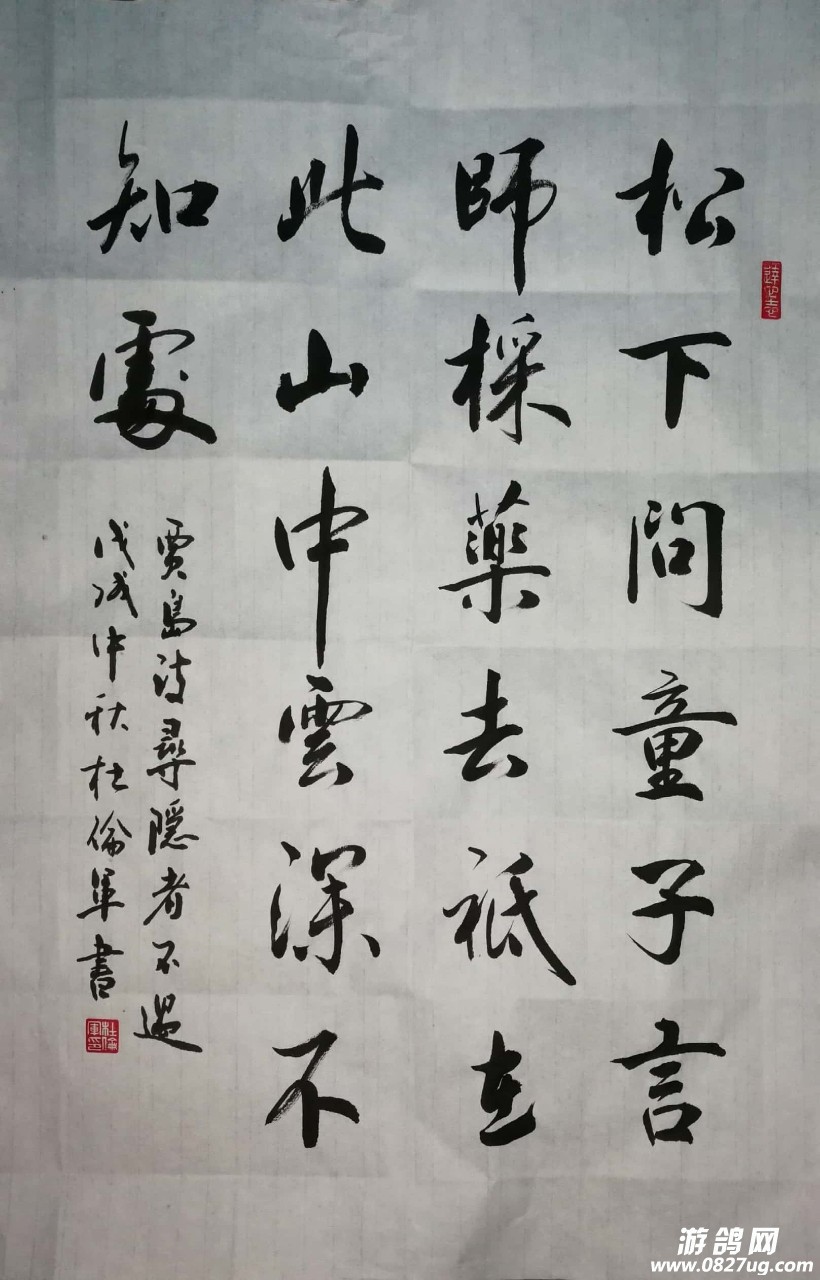 松下問童子言
師採薬去祗在
此山中雲深不
知處
賈島诗尋隠者不遇
戊戌中秋杜倫軍書
杜倫軍印
游鸽网
www.0827ug.com